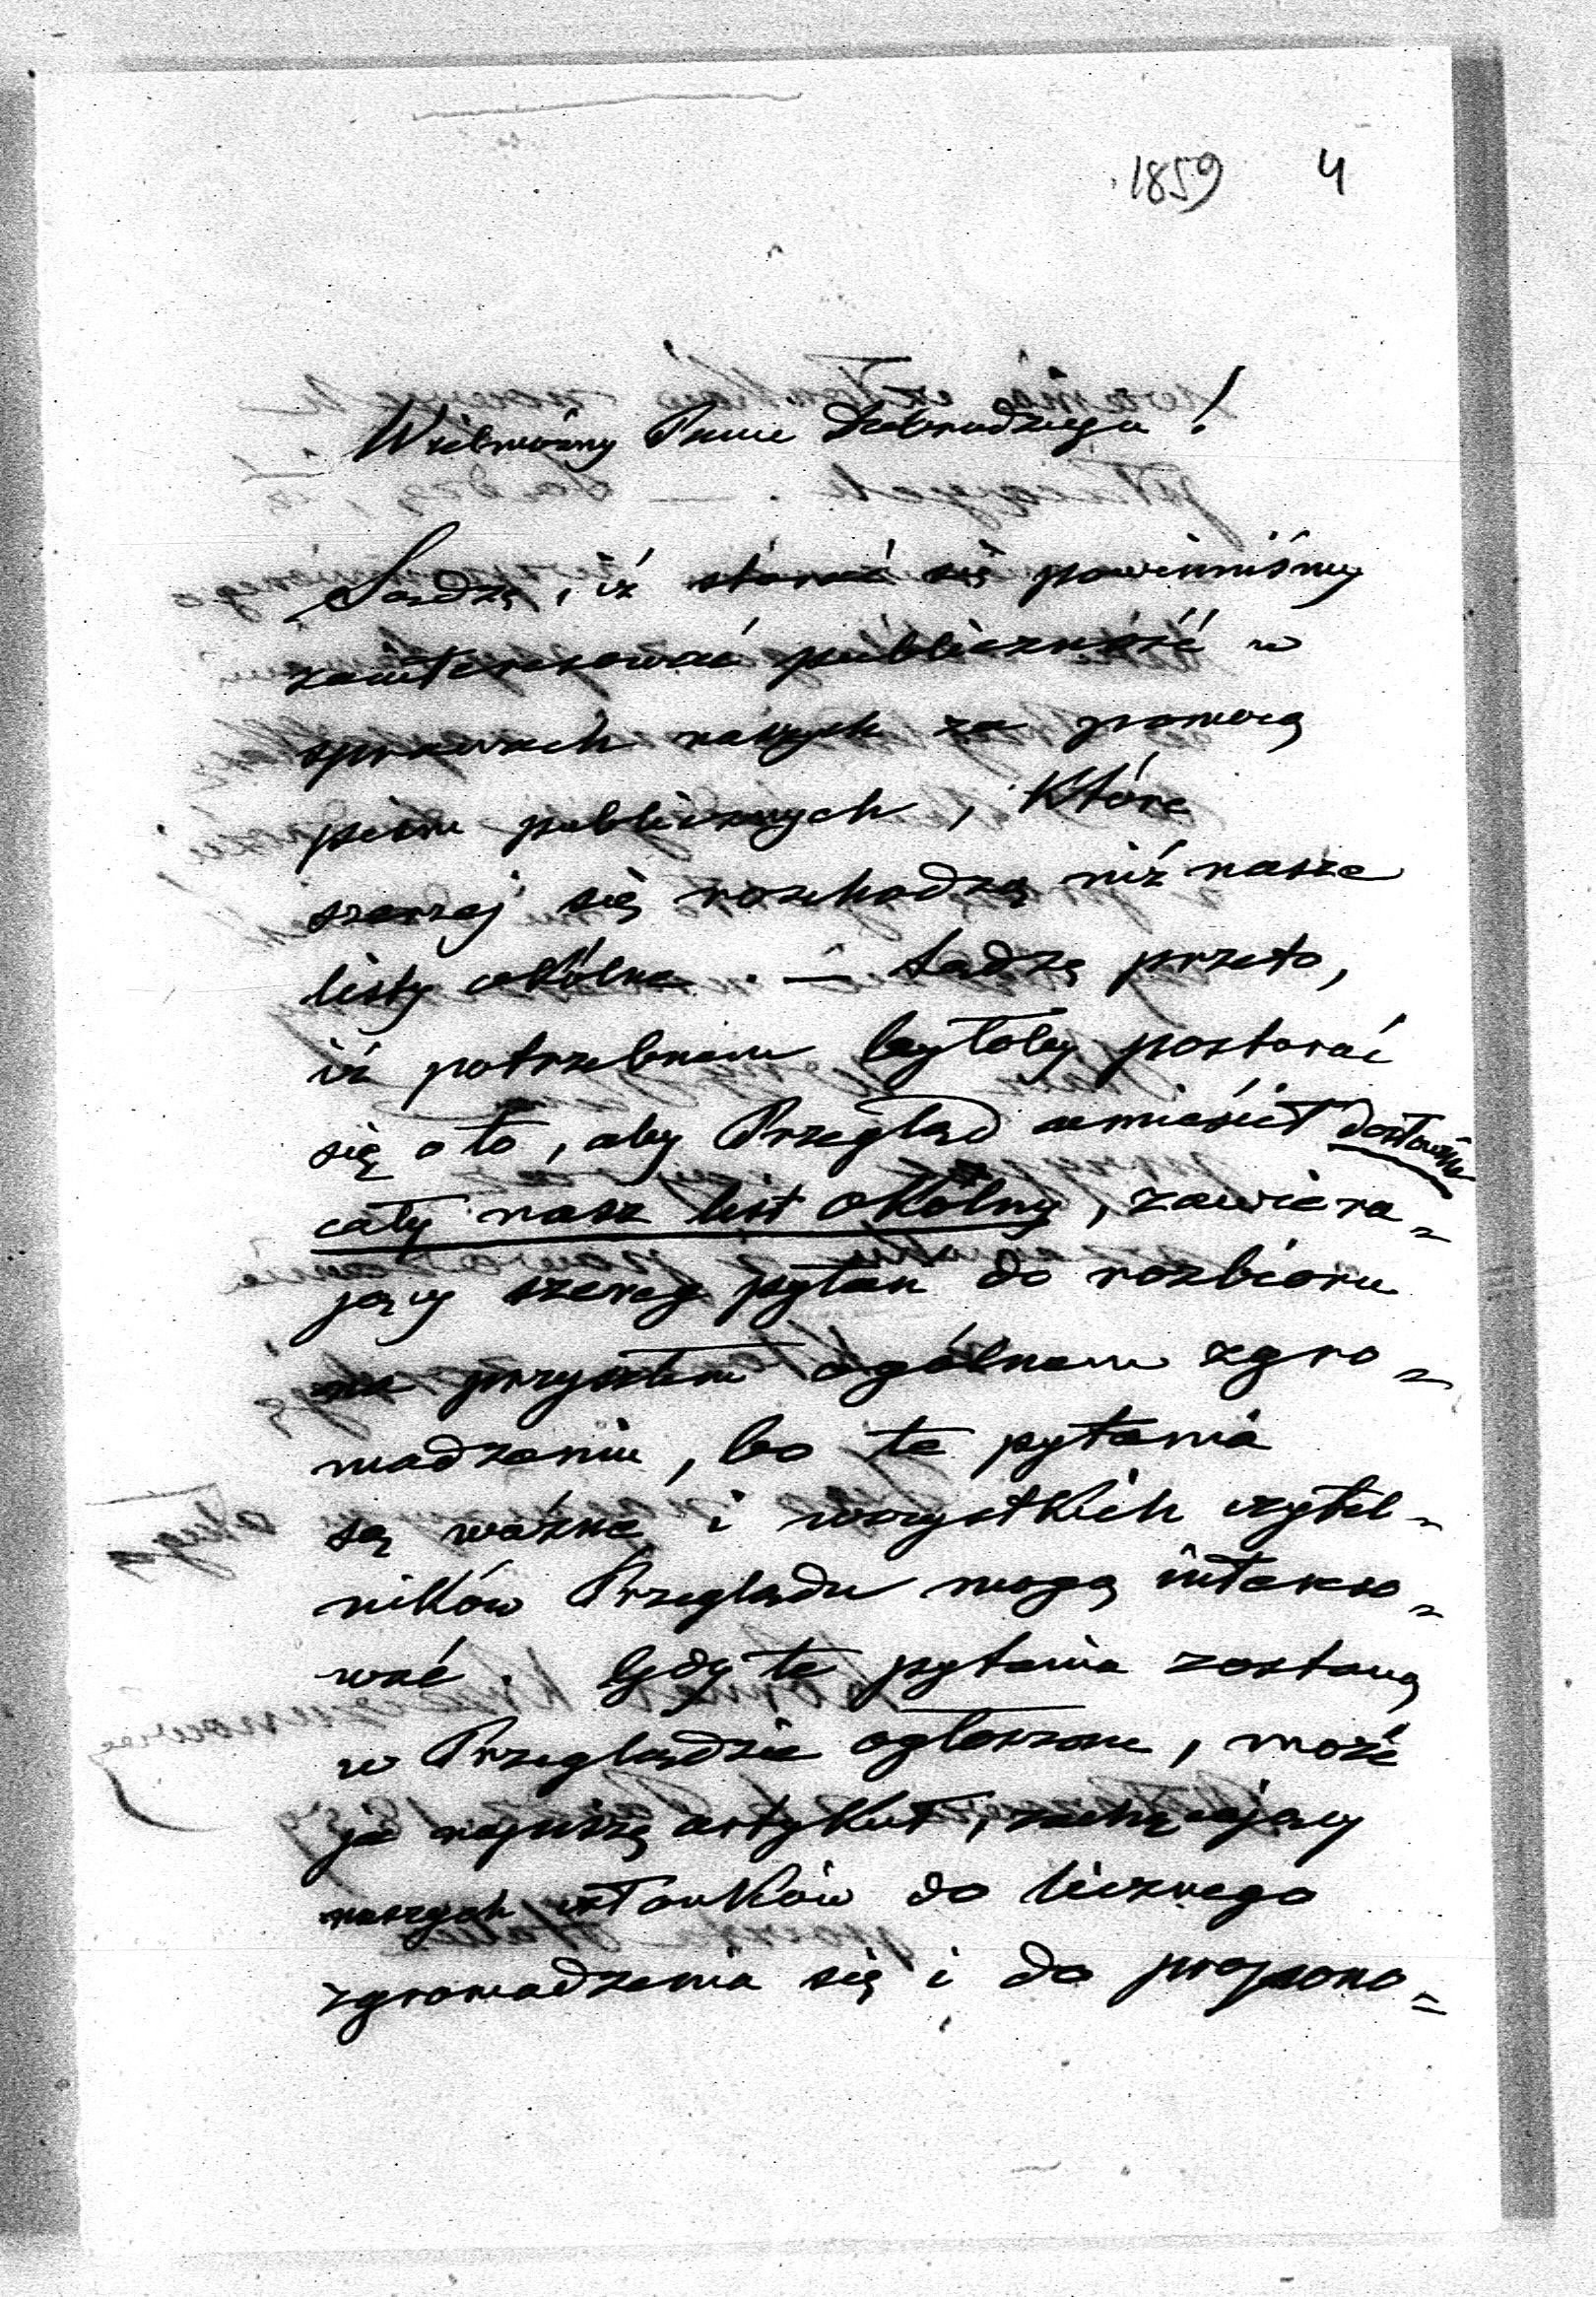 1859 4
Wielmożny Panie Dobrodzieju!
Sądzę, iż starać się powinniśmy
zainteresować publiczność w
sprawach naszych za pomocą
pism publicznych, które
szerzej się rozchodzą niż nasze
listy okólne. — Sądzę przeto,
iż potrzebnem byłoby postarać
się o to, aby Przegląd umieścił dosłownie
cały nasz list okólny, zawiera-
jący szereg pytań do rozbioru
na przyszłem ogólnem zgro-
madzeniu, bo te pytania
są ważne i wszystkich czytel-
ników Przeglądu mogą intereso-
wać. Gdy te pytania zostaną
w Przeglądzie ogłoszone, może
ja napiszę artykuł, zachęcający
naszych członków do licznego
zgromadzenia się i do propono-